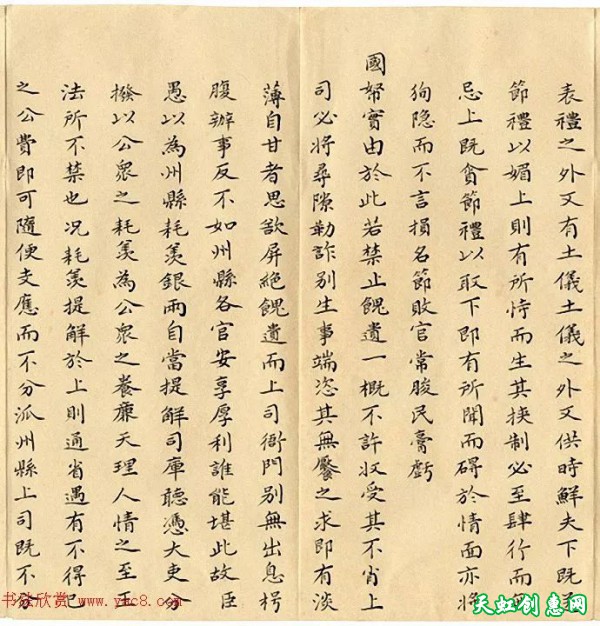 表禮之外又有土儀土儀之外又供時鮮夫下既
節禮以媚上則有所恃而生其挾制必至肆行而無
忌上既貪節禮以取下即有所聞而碍於情面亦將
狥隐而不言損名節敗官常朘民膏虧
國帑實由於此若禁止餽遺一概不許收受其不肖上
司必將尋隙勒詐别生事端恣其無饜之求即有淡
薄自甘者思欲屏絶餽遺而上司衙門别無出息枵
腹辦事反不如州縣各官安享厚利誰能堪此故臣
愚以為州縣耗羡銀兩自當提解司庫聽憑大吏分
撥以公衆之耗羡為公衆之養廉天理人情之至王
法所不禁也况耗羡提解於上則通省遇有不得已
之公費即可隨便支應而不分派州縣上司既不分
书法欣赏 www.yac8.com
天虹创惠网